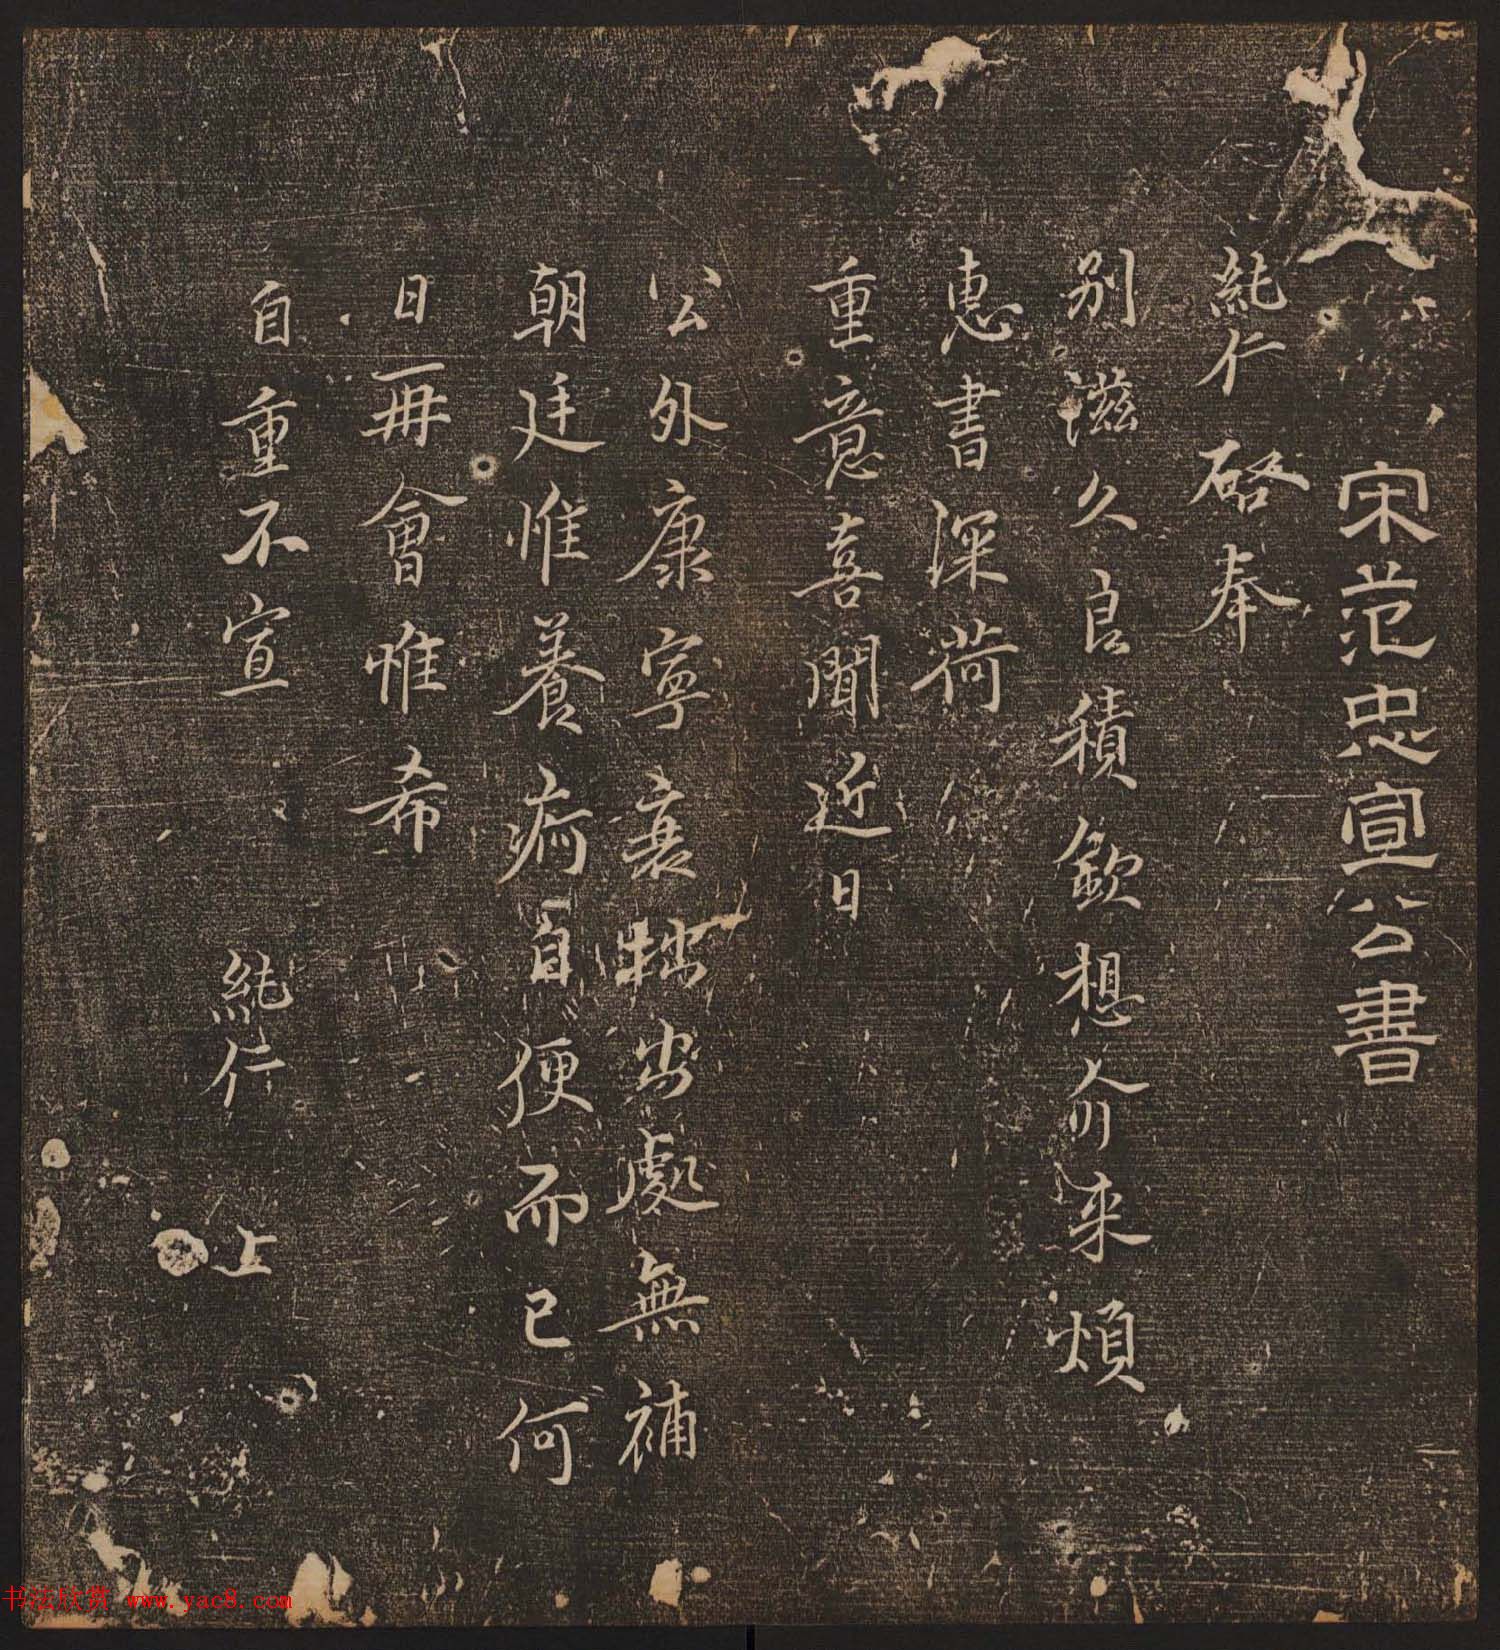 宋范忠宣公書
純仁啓奉
別滋久良積欽想介來煩
惠書深荷
重意喜聞近日
公外康寧衰拙出處無補
朝廷惟養痾自便而已何
日再會惟希
自重不宣　純仁　上
书法欣赏 www.yac8.com